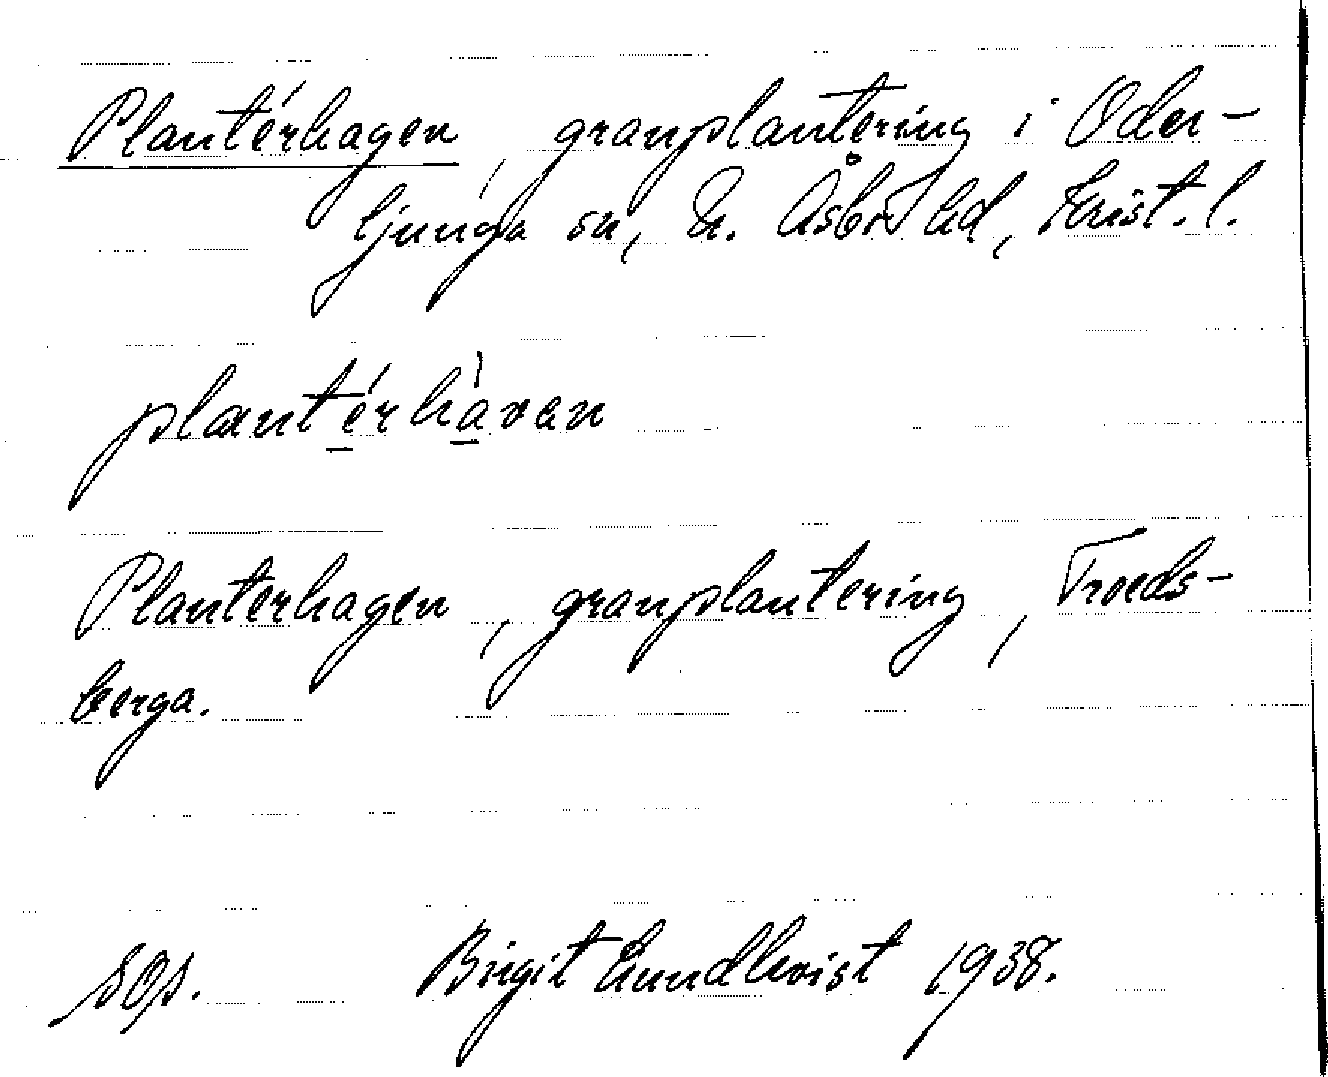 Plantérhagen, granplantering i Oder-
ljunga sn, N. Åsbo hd, Krist. l.
plantérhàvan
Planterhagen, granplantering, Troeds-
berga.
sOp. Birgit Lundkvist 1938.